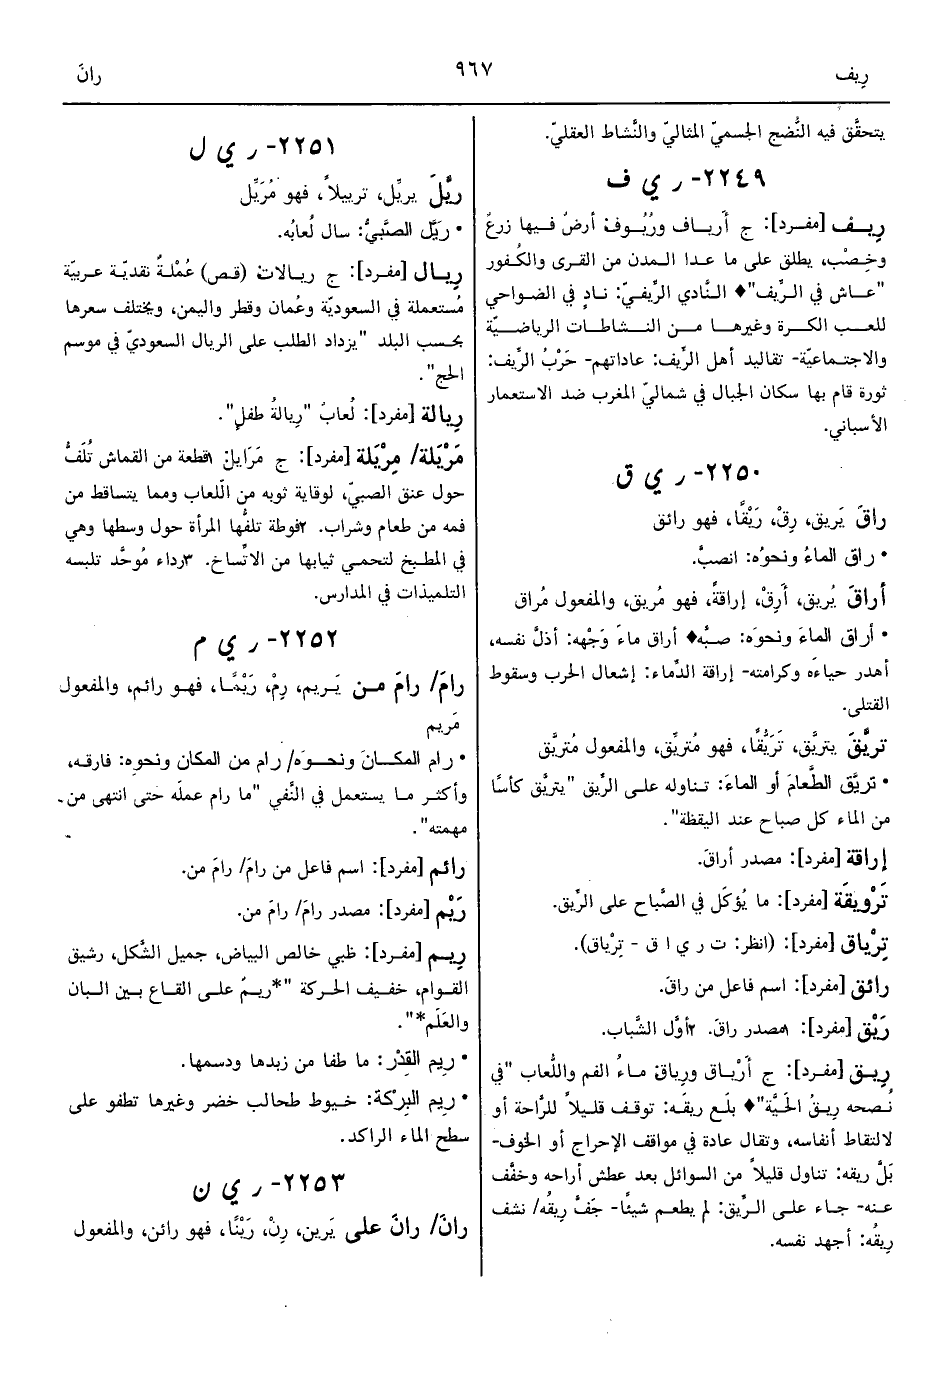 ريف
٩٦٧
رانَ
يتحقَّق فيه النُّضج الجسميّ المثاليّ والنَّشاط العقليّ.
٢٢٤٩- ر ي ف
رِيـف [مفـرد]: ج أريـاف ورُيُـوف أرضٌ فـيها زرعٌ
وخِصْب، يطلق على ما عدا المدن من القرى والكُفور
"عـاش في الـرِّيف"♦ الـنَّادي الرِّيفيّ: نـادٍ في الضواحي
للعب الكـرة وغيرهـا مـن النـشاطات الرياضـيَّة
والاجتماعيَّة- تقاليد أهل الرِّيف: عاداتهم- حَرْبُ الرِّيف:
ثورة قام بها سكان الجبال في شماليّ المغرب ضد الاستعمار
الأسباني.
٢٢٥٠- ر ي ق
راقَ يَريق، رِقْ، رَيْقًا، فهو رائق
• راق الماءُ ونحوُه: انصبَّ.
أراقَ يُريق، أَرِقْ، إراقةً، فهو مُريق، والمفعول مُراق
• أراق الماءَ ونحوَه: صبَّه♦ أراق ماءَ وَجْهه: أذلَّ نفسه،
أهدر حياءَه وكرامته- إراقة الدِّماء: إشعال الحرب وسقوط
القتلى.
تريَّقَ يتريَّق، تَرَيُّقًا، فهو مُتريِّق، والمفعول مُتريَّق
• تريَّق الطَّعامَ أو الماءَ: تـناوله علـى الرِّيق "يتريَّق كأسًا
من الماء كل صباح عند اليقظة".
إراقة [مفرد]: مصدر أراقَ.
تَرْويقَة [مفرد]: ما يُؤكَل في الصَّباح على الرِّيق.
تِرْياق [مفرد]: (انظر: ت ر ي ا ق - تِرْياق).
رائق [مفرد]: اسم فاعل من راقَ.
رَيْق [مفرد]: ١مصدر راقَ. ٢أوَّل الشَّباب.
رِيـق [مفرد]: ج أَرْيـاق ورِياق مـاءُ الفم واللُّعاب "في
نُـصحه ريـقُ الحَيَّة"♦ بلَـع ريقَـه: توقـف قلـيلاً للرَّاحة أو
لالتقاط أنفاسه، وتقال عادة في مواقف الإحراج أو الخوف-
بَلَّ ريقه: تناول قليلاً من السوائل بعد عطش أراحه وخفَّف
عـنه- جـاء علـى الـرِّيق: لم يطعـم شيئًا- جَفَّ رِيقُه/ نشف
رِيقُه: أجهد نفسه.
٢٢٥١- ر ي ل
ريَّلَ يريِّل، ترييلاً، فهو مُرَيِّل
• ريَّل الصَّبيُّ: سال لُعابُه.
رِيـال [مفرد]: ج ريـالات (قـص) عُمْلـةٌ نقديّـة عـربيّة
مُستعملة في السعوديّة وعُمان وقطر واليمن، ويختلف سعرها
بحسب البلد "يزداد الطلب على الريال السعوديّ في موسم
الحج".
رِيالة [مفرد]: لُعابٌ "رِيالةُ طفلٍ".
مَرْيَلة/ مِرْيَلة [مفرد]: ج مَرَايلُ ١قطعة من القماش تُلَفُّ
حول عنق الصبيّ، لوقاية ثوبه من اللّعاب ومما يتساقط من
فمه من طعام وشراب. ٢فوطة تلفُّها المرأة حول وسطها وهي
في المطبخ لتحمي ثيابها من الاتِّساخ. ٣رداء مُوحَّد تلبسه
التلميذات في المدارس.
٢٢٥٢- ر ي م
رامَ/ رامَ مـن يَـريم، رِمْ، رَيْمًـا، فهـو رائم، والمفعول
مَريم
• رام المكـانَ ونحـوَه/ رام من المكان ونحوِه: فارقه،
وأكثر مـا يستعمل في النَّفي "ما رام عملَه حتى انتهى من
مهمته".
رائم [مفرد]: اسم فاعل من رامَ/ رامَ من.
رَيْم [مفرد]: مصدر رامَ/ رامَ من.
رِيـم [مفـرد]: ظبي خالص البياض، جميل الشَّكل، رشيق
القـوام، خفـيف الحـركة "*ريـمٌ علـى القـاع بـين البـان
والعَلَمِ*".
• رِيم القِدْر: ما طفا من زبدها ودسمها.
• رِيم البِرْكة: خـيوط طحالب خضر وغيرها تطفو على
سطح الماء الراكد.
٢٢٥٣- ر ي ن
رانَ/ رانَ على يَرين، رِنْ، رَيْنًا، فهو رائن، والمفعول